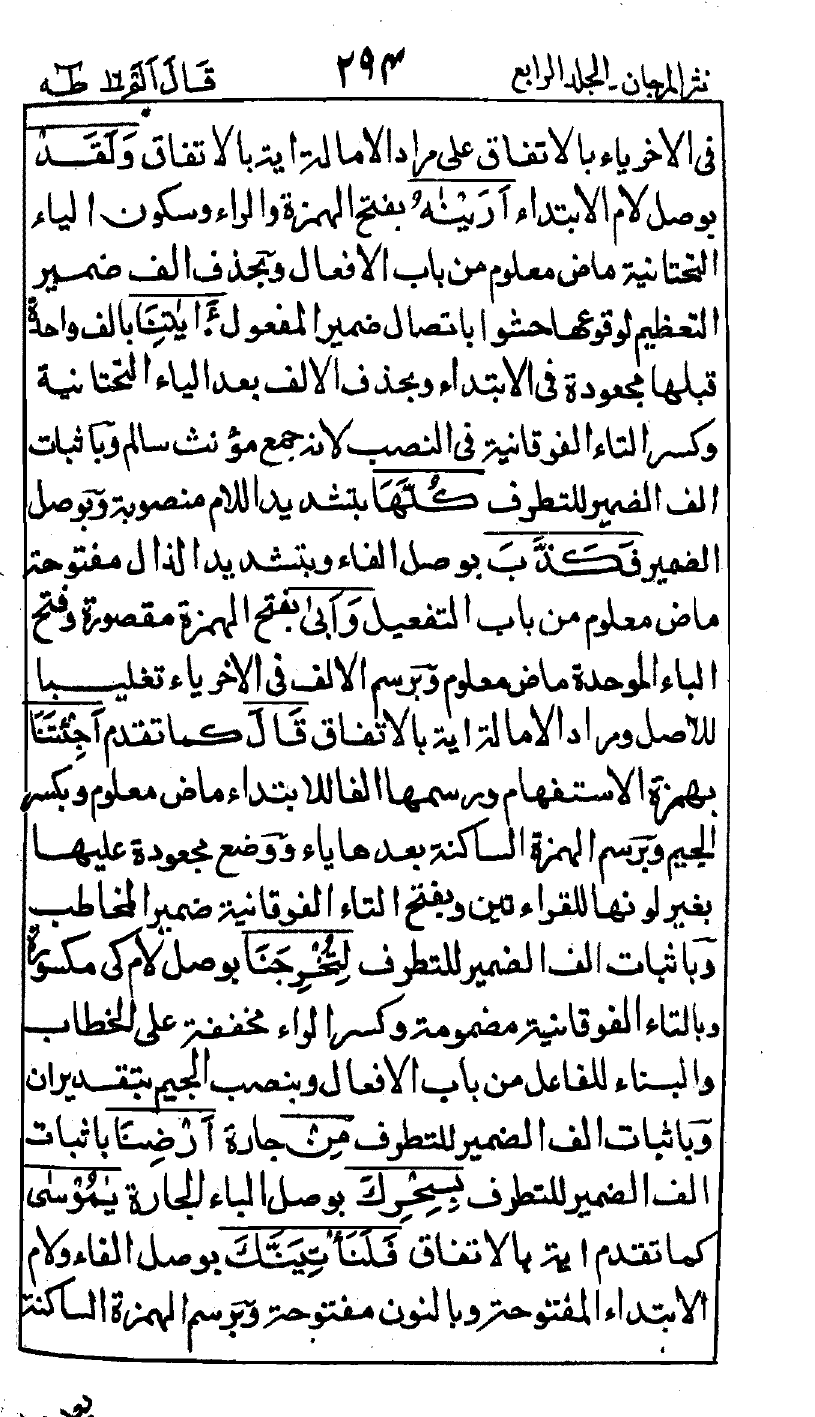 نثر المرجان - المجلد الرابع ٢٩٣ قَالَ اَلَمْ ١٦ طٰهٰ
فى الاخر ياء بالاتفاق على مراد الامالة اية بالاتفاق وَلَقَدْ
بوصل لام الابتداء اَرَيْنٰهُ بفتح الهمزة والراء وسكون الياء
التحتانية ماض معلوم من باب الافعال وبحذف الف ضمير
التعظيم لوقوعها حشوا باتصال ضمير المفعول ءَايٰتِنَا بالف واحدة
قبلها مجعودة فى الابتداء وبحذف الالف بعد الياء التحتانية
وكسر التاء الفوقانية فى النصب لانه جمع مؤنث سالم وبَاثبات
الف الضمير للتطرف كُلَّهَا بتشديد اللام منصوبة وَبوصل
الضمير فَكَذَّبَ بوصل الفاء وبتشديد الذال مفتوحة
ماض معلوم من باب التفعيل وَاَبٰى بفتح الهمزة مقصورة وفتح
الباء الموحدة ماض معلوم وَبَرسم الالف فى الاخر ياء تغليبا
للاصل ومراد الامالة اية بالاتفاق قَالَ كما تقدم اَجِئْتَنَا
بهمزة الاستفهام ورسمها الفا للابتداء ماض معلوم وبكسر
الجيم وبَرسم الهمزة الساكنة بعدها ياء وَوضع مجعودة عليها
بغير لونها للقراءتين وبفتح التاء الفوقانية ضمير المخاطب
وَباثبات الف الضمير للتطرف لِتُخْرِجَنَا بوصل لام كى مكسورة
وبالتاء الفوقانية مضمومة وكسر الراء مخففة على الخطاب
والبناء للفاعل من باب الافعال وبنصب الجيم بتقدير ان
وَباثبات الف الضمير للتطرف مِنْ جارة اَرْضِنَا باثبات
الف الضمير للتطرف بِسِحْرِكَ بوصل الباء الجارة يٰمُوْسٰى
كما تقدم اية بالاتفاق فَلَنَأْتِيَنَّكَ بوصل الفاء ولام
الابتداء المفتوحة وبالنون مفتوحة وَبَرسم الهمزة الساكنة